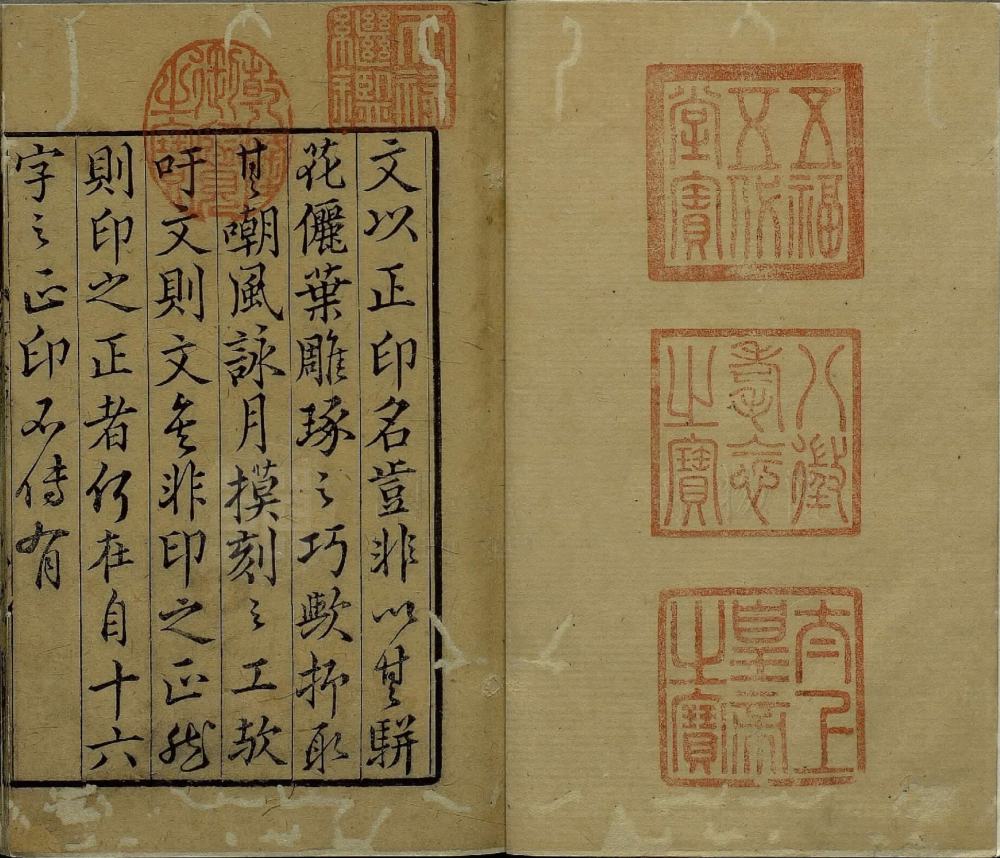 五福五代堂寶
八徵耄念之寶
太上皇帝之寶
天祿繼鑑
乾隆御覽之寶
文以正印名豈非以其駢
花儷葉雕琢之巧歟抑取
其嘲風詠月摸刻之工歟
吁文則文矣非印之正然
則印之正者何在自十六
字之正印不傳有